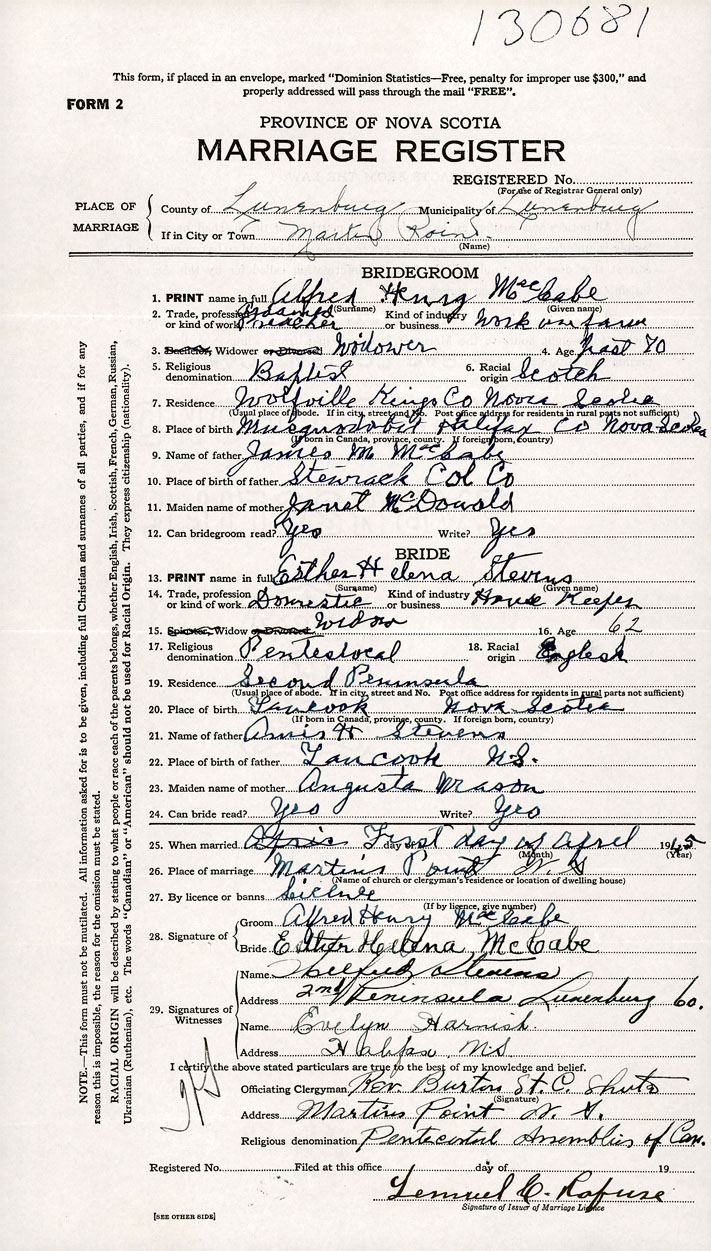 130681
This form, if placed in an envelope, marked "Dominion Statistics—Free, penalty for improper use $300," and
properly addressed will pass through the mail "FREE".
FORM 2
PROVINCE OF NOVA SCOTIA
MARRIAGE REGISTER
REGISTERED No.
(For use of Registrar General only)
PLACE OF MARRIAGE
County of Lunenburg Municipality of Lunenburg
If in City or Town Martin Point
(Name)
BRIDEGROOM
1. PRINT name in full Alfred Henry MacCabe
(Surname) (Given name)
2. Trade, profession or kind of work Preacher Kind of industry or business Work on farm
3. Bachelor, Widower or Divorced Widower 4. Age past 70
5. Religious denomination Baptist 6. Racial origin Scotch
7. Residence Wolfville Kings Co Nova Scotia
(Usual place of abode. If in city, street and No. Post office address for residents in rural parts not sufficient)
8. Place of birth Musquodobit Halifax Co Nova Scotia
(If born in Canada, province, county. If foreign born, country)
9. Name of father James M McCabe
10. Place of birth of father Stewiack Col Co
11. Maiden name of mother Janet McDonald
12. Can bridegroom read? Yes Write? Yes
BRIDE
13. PRINT name in full Esther Helena Stevens
(Surname) (Given name)
14. Trade, profession or kind of work Domestic Kind of industry or business House Keeper
15. Spinster, Widow or Divorced Widow 16. Age 62
17. Religious denomination Penteslocal 18. Racial origin English
19. Residence Second Peninsula
(Usual place of abode. If in city, street and No. Post office address for residents in rural parts not sufficient)
20. Place of birth Tancook Nova Scotia
(If born in Canada, province, county. If foreign born, country)
21. Name of father Amis H Stevens
22. Place of birth of father Tancook N.S.
23. Maiden name of mother Angusta Mason
24. Can bride read? Yes Write? Yes
25. When married April First day of April 1945
day of (Month) (Year)
26. Place of marriage Martins Point N.S
(Name of church or clergyman's residence or location of dwelling house)
27. By licence or banns Licence
(If by licence, give number)
28. Signature of
Groom Alfred Henry MacCabe
Bride Esther Helena McCabe
29. Signatures of Witnesses
Name Wilfred Stevens
Address 2nd Peninsula Lunenburg Co.
Name Evelyn Harnish
Address Halifax N.S
I certify the above stated particulars are true to the best of my knowledge and belief.
Officiating Clergyman Rev. Burton St. C. Shute
(Signature)
Address Martins Point N.S.
Religious denomination Pentecostal Assemblies of Can.
Registered No. Filed at this office day of 19
Lemuel C. Rafuse
Signature of Issuer of Marriage Licence
[SEE OTHER SIDE]
NOTE.—This form must not be mutilated. All information asked for is to be given, including full Christian and surnames of all parties, and if for any
reason this is impossible, the reason for the omission must be stated.
RACIAL ORIGIN will be described by stating to what people or race each of the parents belongs, whether English, Irish, Scottish, French, German, Russian,
Ukrainian (Ruthenian), etc. The words "Canadian" or "American" should not be used for Racial Origin. They express citizenship (nationality).